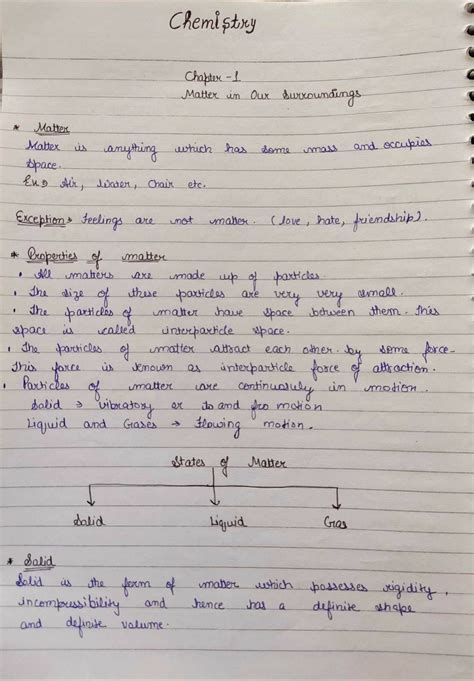 Chemistry
Chapter -1
Matter in Our Surroundings
* Matter
Matter is anything which has some mass and occupies
space.
Ex:→ Air, Water, Chair etc.
Exception→ Feelings are not matter. (love, hate, friendship).
* Properties of matter
• All matters are made up of particles.
• The size of these particles are very very small.
• The particles of matter have space between them. This
space is called interparticle space.
• The particles of matter attract each other by some force.
This force is known as interparticle force of attraction.
• Particles of matter are continuously in motion.
Solid → vibratory or to and fro motion
Liquid and Gases → Flowing motion.
States of Matter
Solid Liquid Gas
* Solid
Solid is the form of matter which possesses rigidity,
incompressibility and hence has a definite shape
and definite volume.